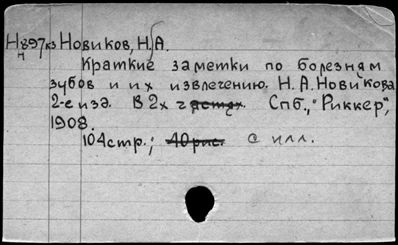 Н897кз Новиков, Н.А.
н
Краткие заметки по болезням
зубов и их извлечению. Н.А. Новикова
2-е изд. В 2х частях. Спб., "Риккер",
1908.
104 стр.; 40 рис. с илл.